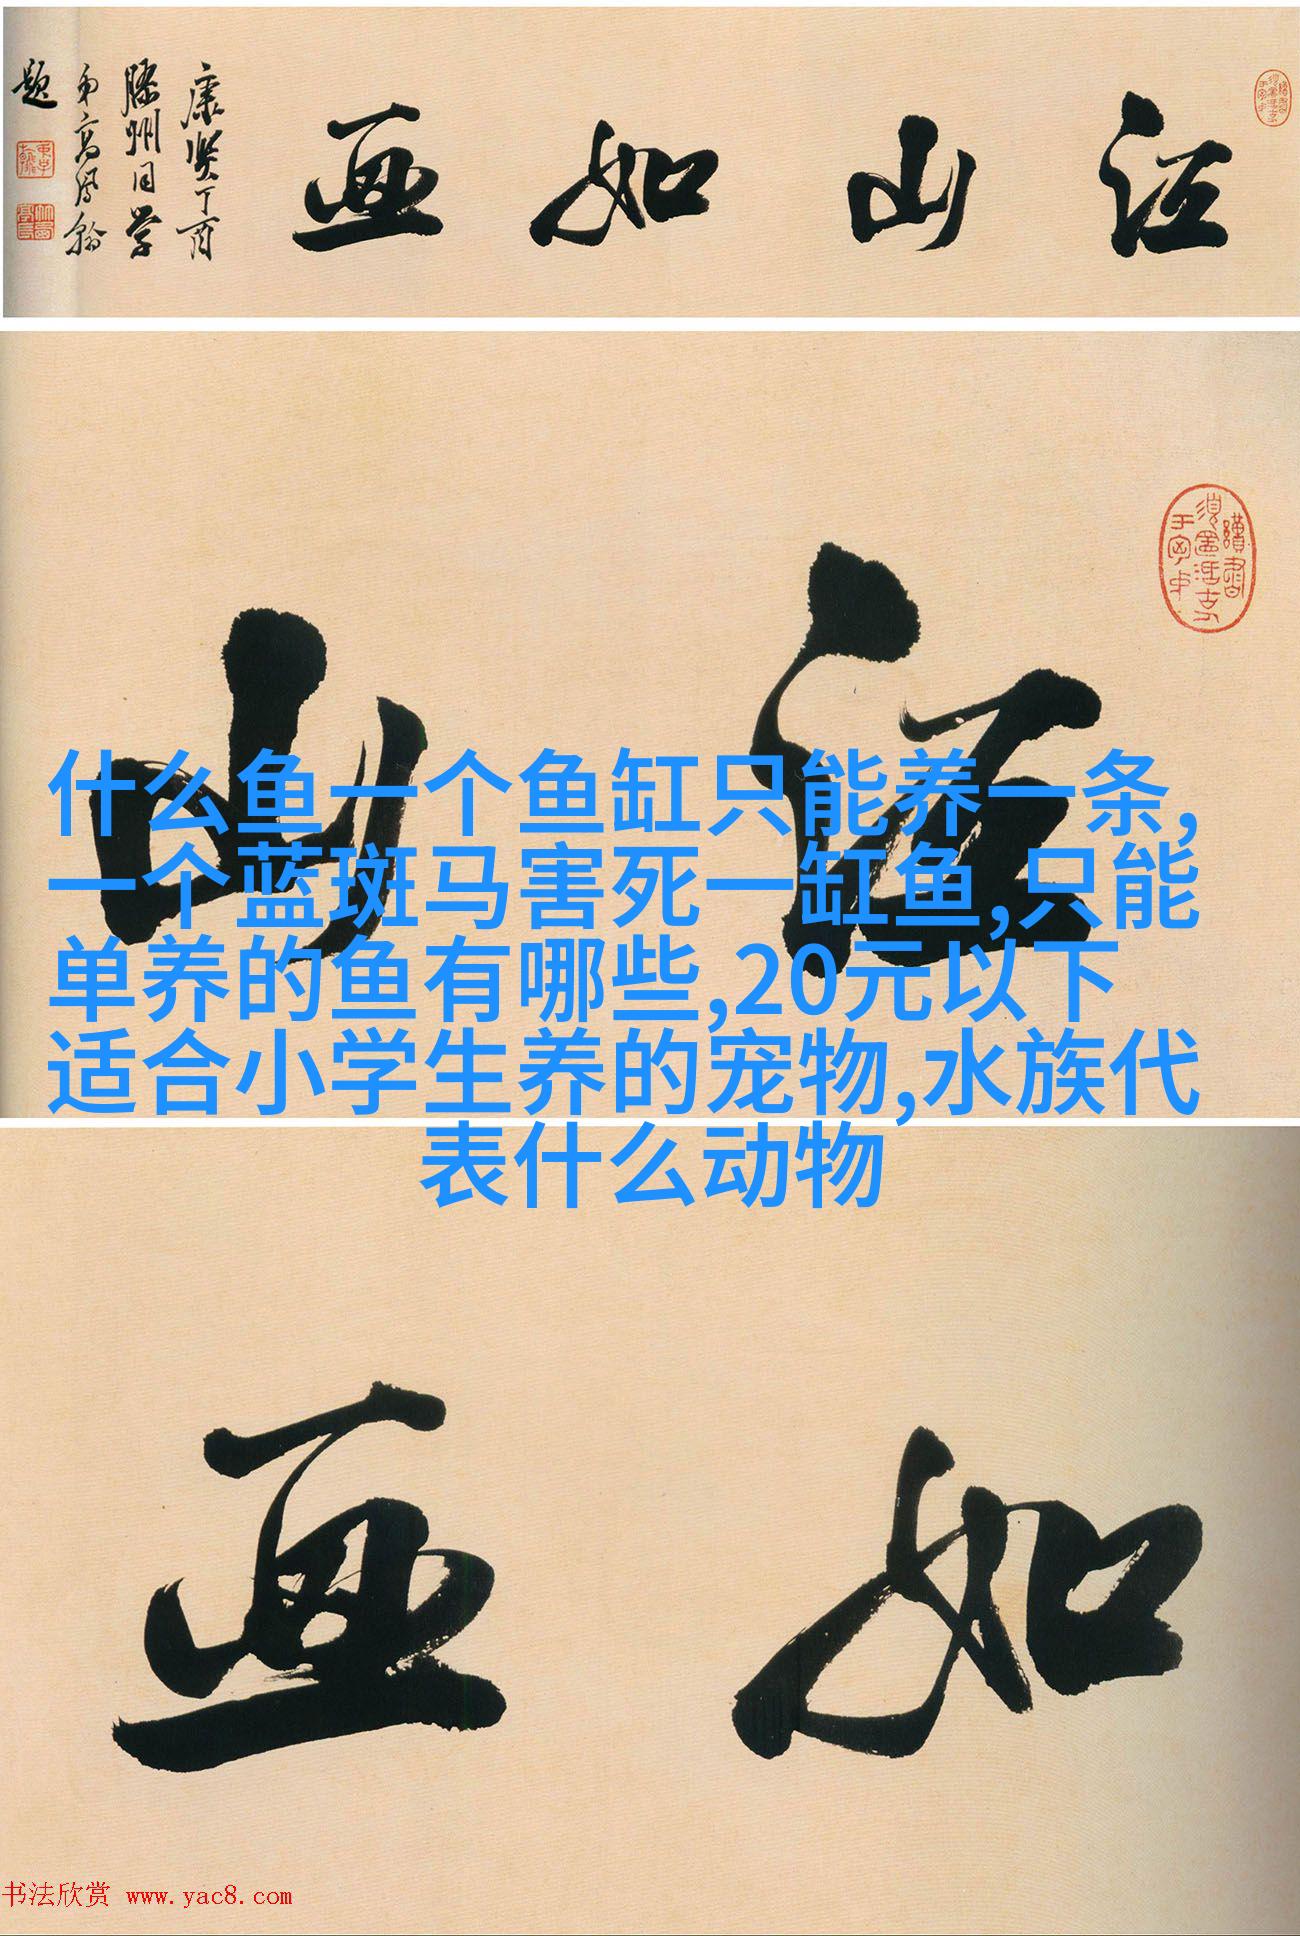 江山如画
康贤丁酉
滕州同学
弟高凤翰
题
山江
什么鱼一个鱼缸只能养一条,
一个蓝斑马害死一缸鱼,只能
单养的鱼有哪些,20元以下
适合小学生养的宠物,水族代
表什么动物
如画
书法欣赏 www.yac8.com